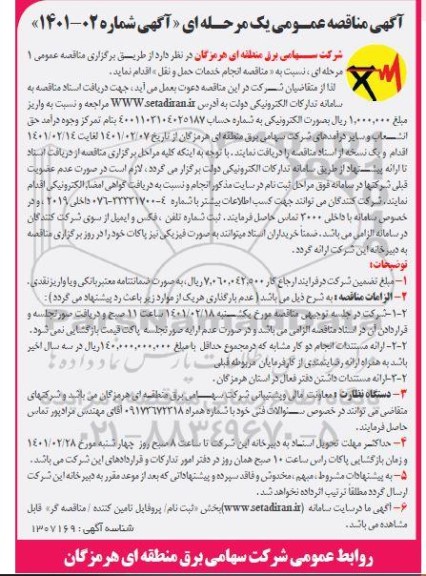 آگهی مناقصه عمومی یک مرحله ای «آگهی شماره ۰۲-۱۴۰۱»
شرکت سهامی برق منطقه ای هرمزگان در نظر دارد از طریق برگزاری مناقصه عمومی ۱
مرحله ای ، نسبت به « مناقصه انجام خدمات حمل و نقل » اقدام نماید .
لذا از متقاضیان شرکت در این مناقصه دعوت بعمل می آید ، جهت دریافت اسناد مناقصه به
سامانه تدارکات الکترونیکی دولت به آدرس WWW.setadiran.ir مراجعه و نسبت به واریز
مبلغ ۱,۰۰۰,۰۰۰ ریال بصورت الکترونیکی به شماره حساب ۴۰۰۱۱۰۳۱۰۴۰۲۵۱۸۷ بنام تمرکز وجوه درآمد حق
انشعاب و سایر درآمدهای شرکت سهامی برق منطقه ای هرمزگان از تاریخ ۱۴۰۱/۰۲/۰۷ لغایت ۱۴۰۱/۰۲/۱۴
اقدام و یک نسخه از اسناد مناقصه را دریافت نمایند . با توجه به اینکه کلیه مراحل برگزاری مناقصه از دریافت اسناد
تا ارائه پیشنهاد از طریق سامانه تدارکات الکترونیکی دولت برگزار می گردد ، لازم است در صورت عدم عضویت
قبلی شرکتها در سامانه فوق مراحل ثبت نام در سایت مذکور انجام و نسبت به دریافت گواهی امضا الکترونیکی اقدام
نمایند . شرکت کنندگان می توانند جهت کسب اطلاعات بیشتر با شماره ۴-۰۷۶-۳۳۳۳۱۷۰۰ داخلی ۲۰۱۹ ، و در
خصوص سامانه با داخلی ۳۰۰۰ تماس حاصل فرمایند . ثبت شماره تلفن ، فکس و ایمیل از سوی شرکت کنندگان
در سامانه الزامی می باشد . ضمنا خریداران اسناد میتوانند به صورت فیزیکی نیز پاکات خود را در روز برگزاری مناقصه
به دبیرخانه این شرکت ارائه گردد .
توضیحات :
۱- مبلغ تضمین شرکت در فرایند ارجاع کار ۷,۰۶۰,۰۴۲,۵۰۰ ریال ، به صورت ضمانتنامه معتبر بانکی و یا واریز نقدی .
۲- الزامات مناقصه به شرح ذیل می باشد ( عدم بارگذاری هر یک از موارد زیر باعث رد پیشنهاد می گردد ) :
۱-۲- شرکت در جلسه توجیهی مناقصه مورخ یکشنبه ۱۴۰۱/۰۲/۱۸ ساعت ۱۱ صبح و دریافت صورتجلسه و
قراردادن آن در اسناد مناقصه الزامی می باشد و در صورت عدم ارایه صورتجلسه پاکت قیمت بازگشایی نمی شود .
۲-۲- ارائه مستندات انجام دو کار مشابه که در مجموع حداقل با مبلغ ۱۴۰,۰۰۰,۰۰۰,۰۰۰ ریال در سه سال اخیر
باشد به همراه ارائه رضایتمندی از کارفرمایان مربوطه قبلی
۳-۲- ارائه مستندات داشتن دفتر فعال در استان هرمزگان .
۳- دستگاه نظارت : معاونت مالی و پشتیبانی شرکت سهامی برق منطقه ای هرمزگان می باشد و شرکتهای
متقاضی می توانند در خصوص سئوالات فنی خود با شماره همراه ۰۹۱۷۳۶۷۲۲۱۸ آقای مهندس مرادپور تماس
حاصل فرمایند .
۴- حداکثر مهلت تحویل اسناد به دبیرخانه این شرکت تا ساعت ۸ صبح روز چهارشنبه مورخ ۱۴۰۱/۰۲/۲۸
و زمان بازگشایی پاکات راس ساعت ۱۰ صبح همان روز در دفتر امور تدارکات و قراردادهای این شرکت می باشد .
۵- به پیشنهادات مشروط ، مبهم ، مخدوش و فاقد سپرده و پیشنهاداتی که بعد از موعد مقرر به دبیرخانه این شرکت
ارسال گردد مطلقا ترتیب اثر داده نخواهد شد .
۶- آگهی ما در سایت سامانه (www.setadiran.ir) بخش «ثبت نام / پروفایل تامین کننده / مناقصه گر» قابل
مشاهده می باشد .
شناسه آگهی : ۱۳۰۷۱۶۹
روابط عمومی شرکت سهامی برق منطقه ای هرمزگان